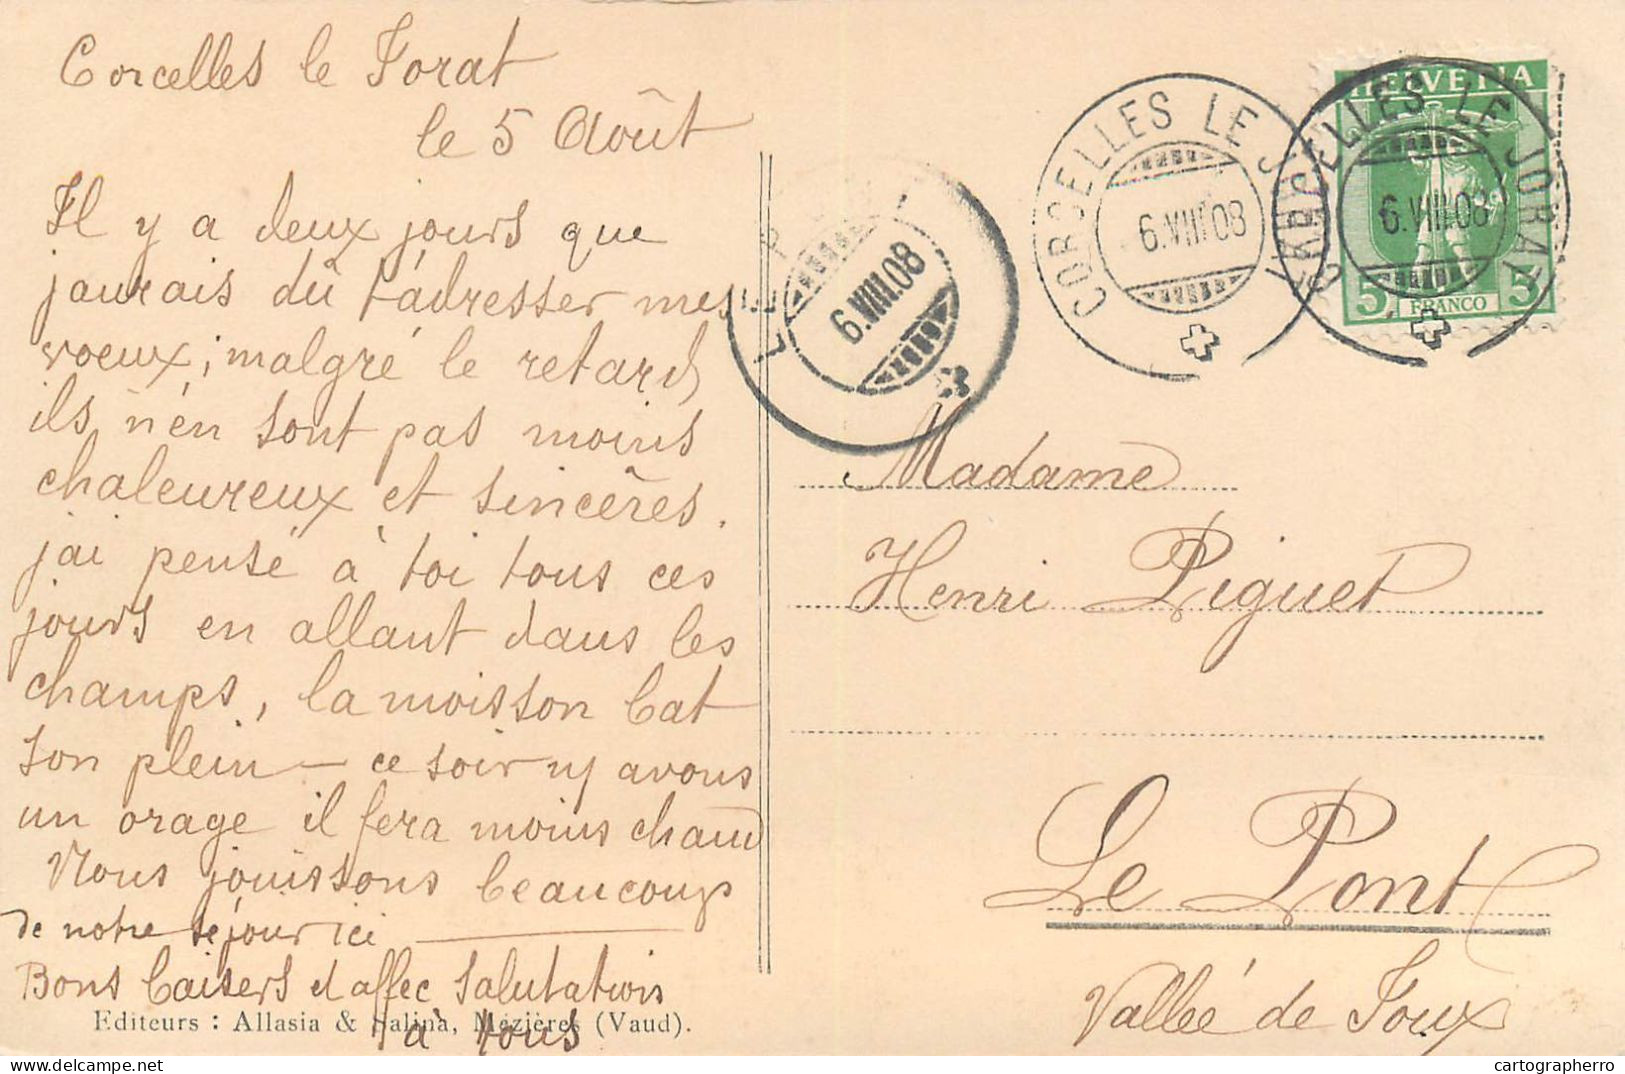 Corcelles le Jorat
le 5 Août
Il y a deux jours que
j'aurais dû t'adresser mes
voeux; malgré le retard
ils n'en sont pas moins
chaleureux et sincères.
j'ai pensé à toi tous ces
jours en allant dans les
champs, la moisson bat
son plein — ce soir ns avons
un orage il fera moins chaud
Nous jouissons beaucoup
de notre séjour ici
Bons baisers et affec salutations
à tous
Editeurs : Allasia & Salina, Mézières (Vaud).
LE PONT
6.VIII.08
CORCELLES LE JORAT
6.VIII.08
CORCELLES LE JORAT
6.VIII.08
HELVETIA
5 FRANCO 5
Madame
Henri Piguet
Le Pont
Vallée de Joux
cartographerro